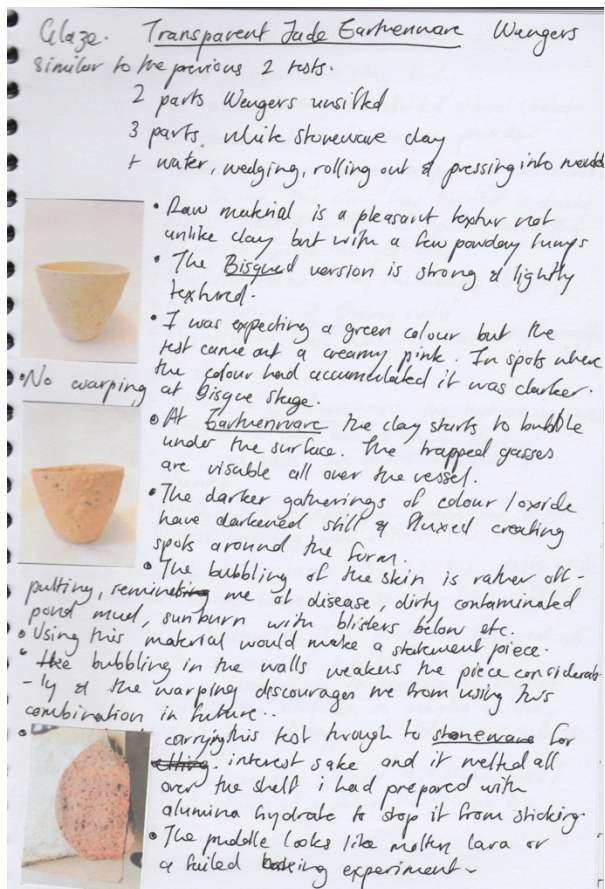 Glaze. Transparent Jade Earthenware Wengers
Similar to the previous 2 tests.
2 parts Wengers unsifted
3 parts white stoneware clay
+ water, wedging, rolling out & pressing into mould
• Raw material is a pleasant textur not
unlike clay but with a few powday lumps
• The Bisqued version is strong & lightly
textured.
• I was expecting a green colour but the
test came out a creamy pink. In spots where
the colour had accumulated it was darker.
• No warping at Bisque stage.
• At Earthenware the clay starts to bubble
under the surface. The trapped gasses
are visable all over the vessel.
• The darker gatherings of colour / oxide
have darkened still & fluxed creating
spots around the form.
• The bubbling of the skin is rather off-
putting, reminding me of disease, dirty contaminated
pond mud, sunburn with blisters below etc.
• Using this material would make a statement piece.
• the bubbling in the walls weakens the piece considerab-
-ly & the warping discourages me from using this
combination in future..
• carrying this test through to stoneware for
interest sake and it melted all
over the shelf i had prepared with
alumina hydrate to stop it from sticking.
• The puddle looks like molten lava or
a failed baking experiment~